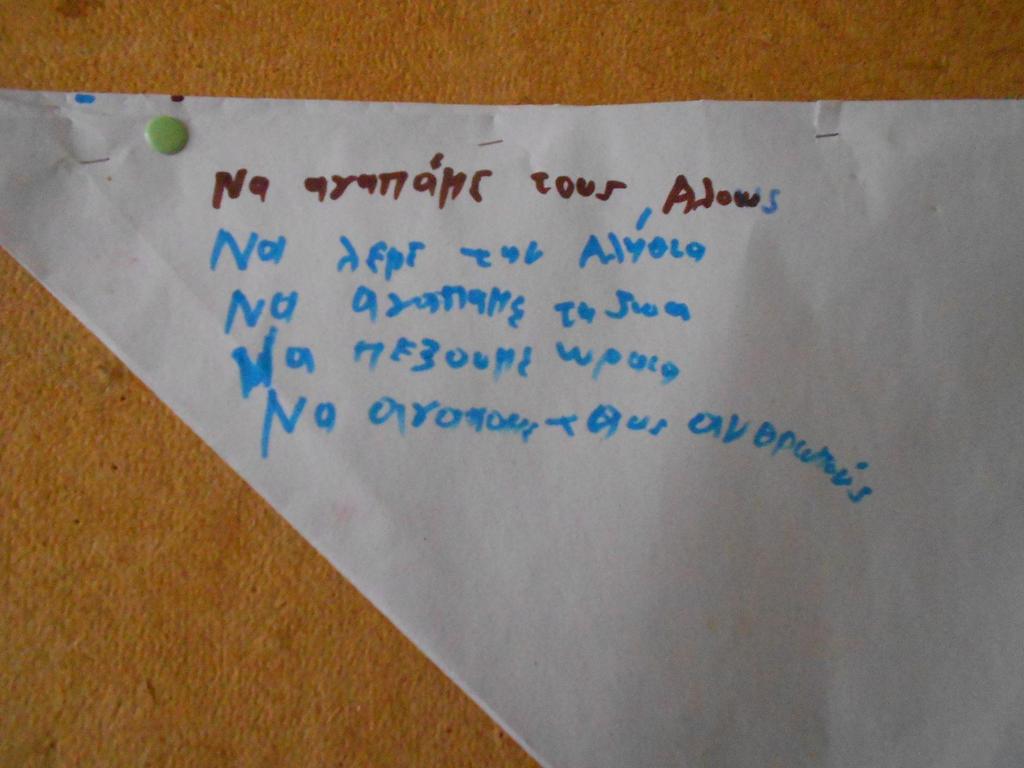 Να αγαπάμε τους Αλους
Να λεμε την Αλήθια
Να αγαπαμε τα ζωα
Να πεζουμε ωραια
Να αγαπους τους ανθρωπούς